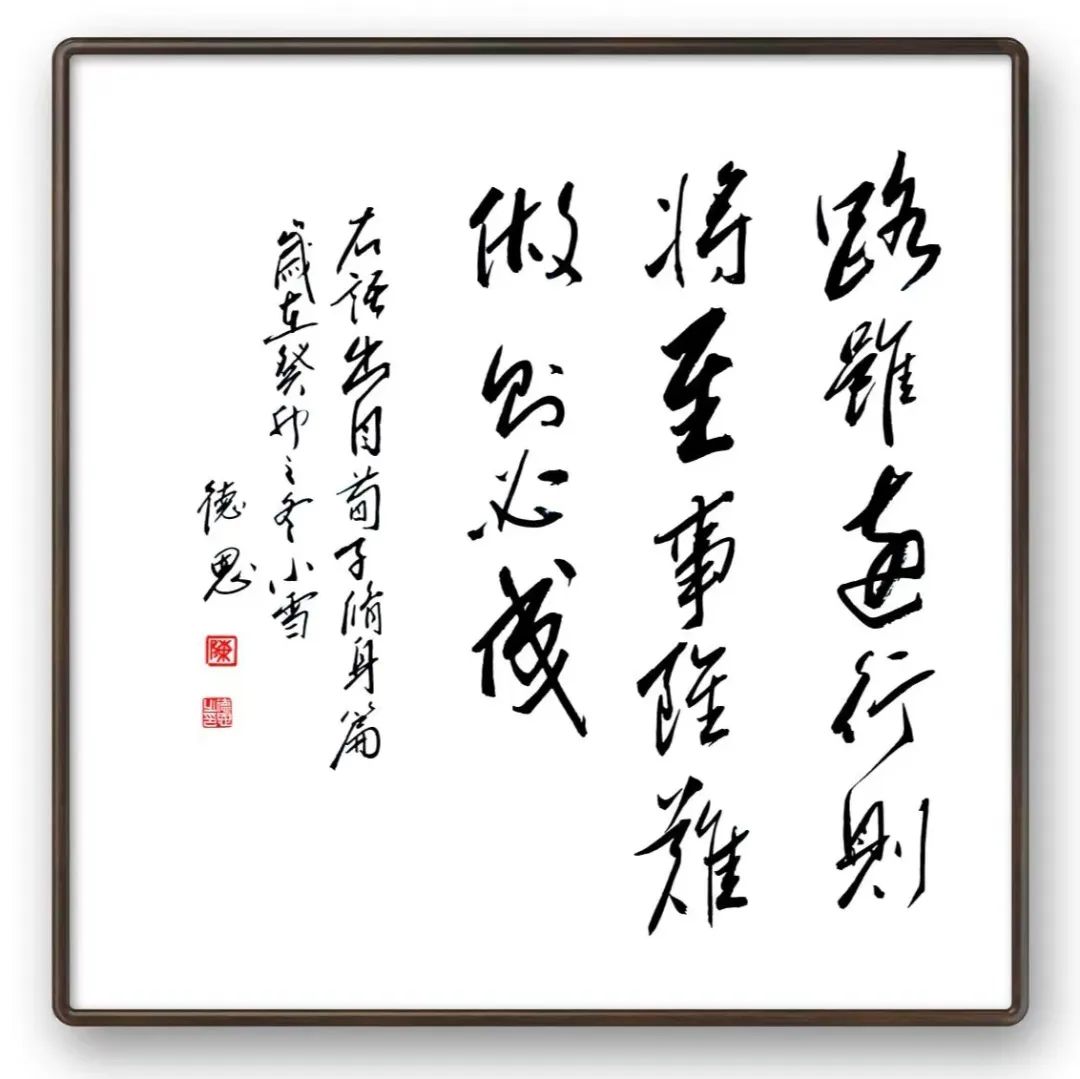 路雖遠行則
將至事雖難
做則必成
右語出自荀子脩身篇
歲在癸卯之冬小雪
德思
陳